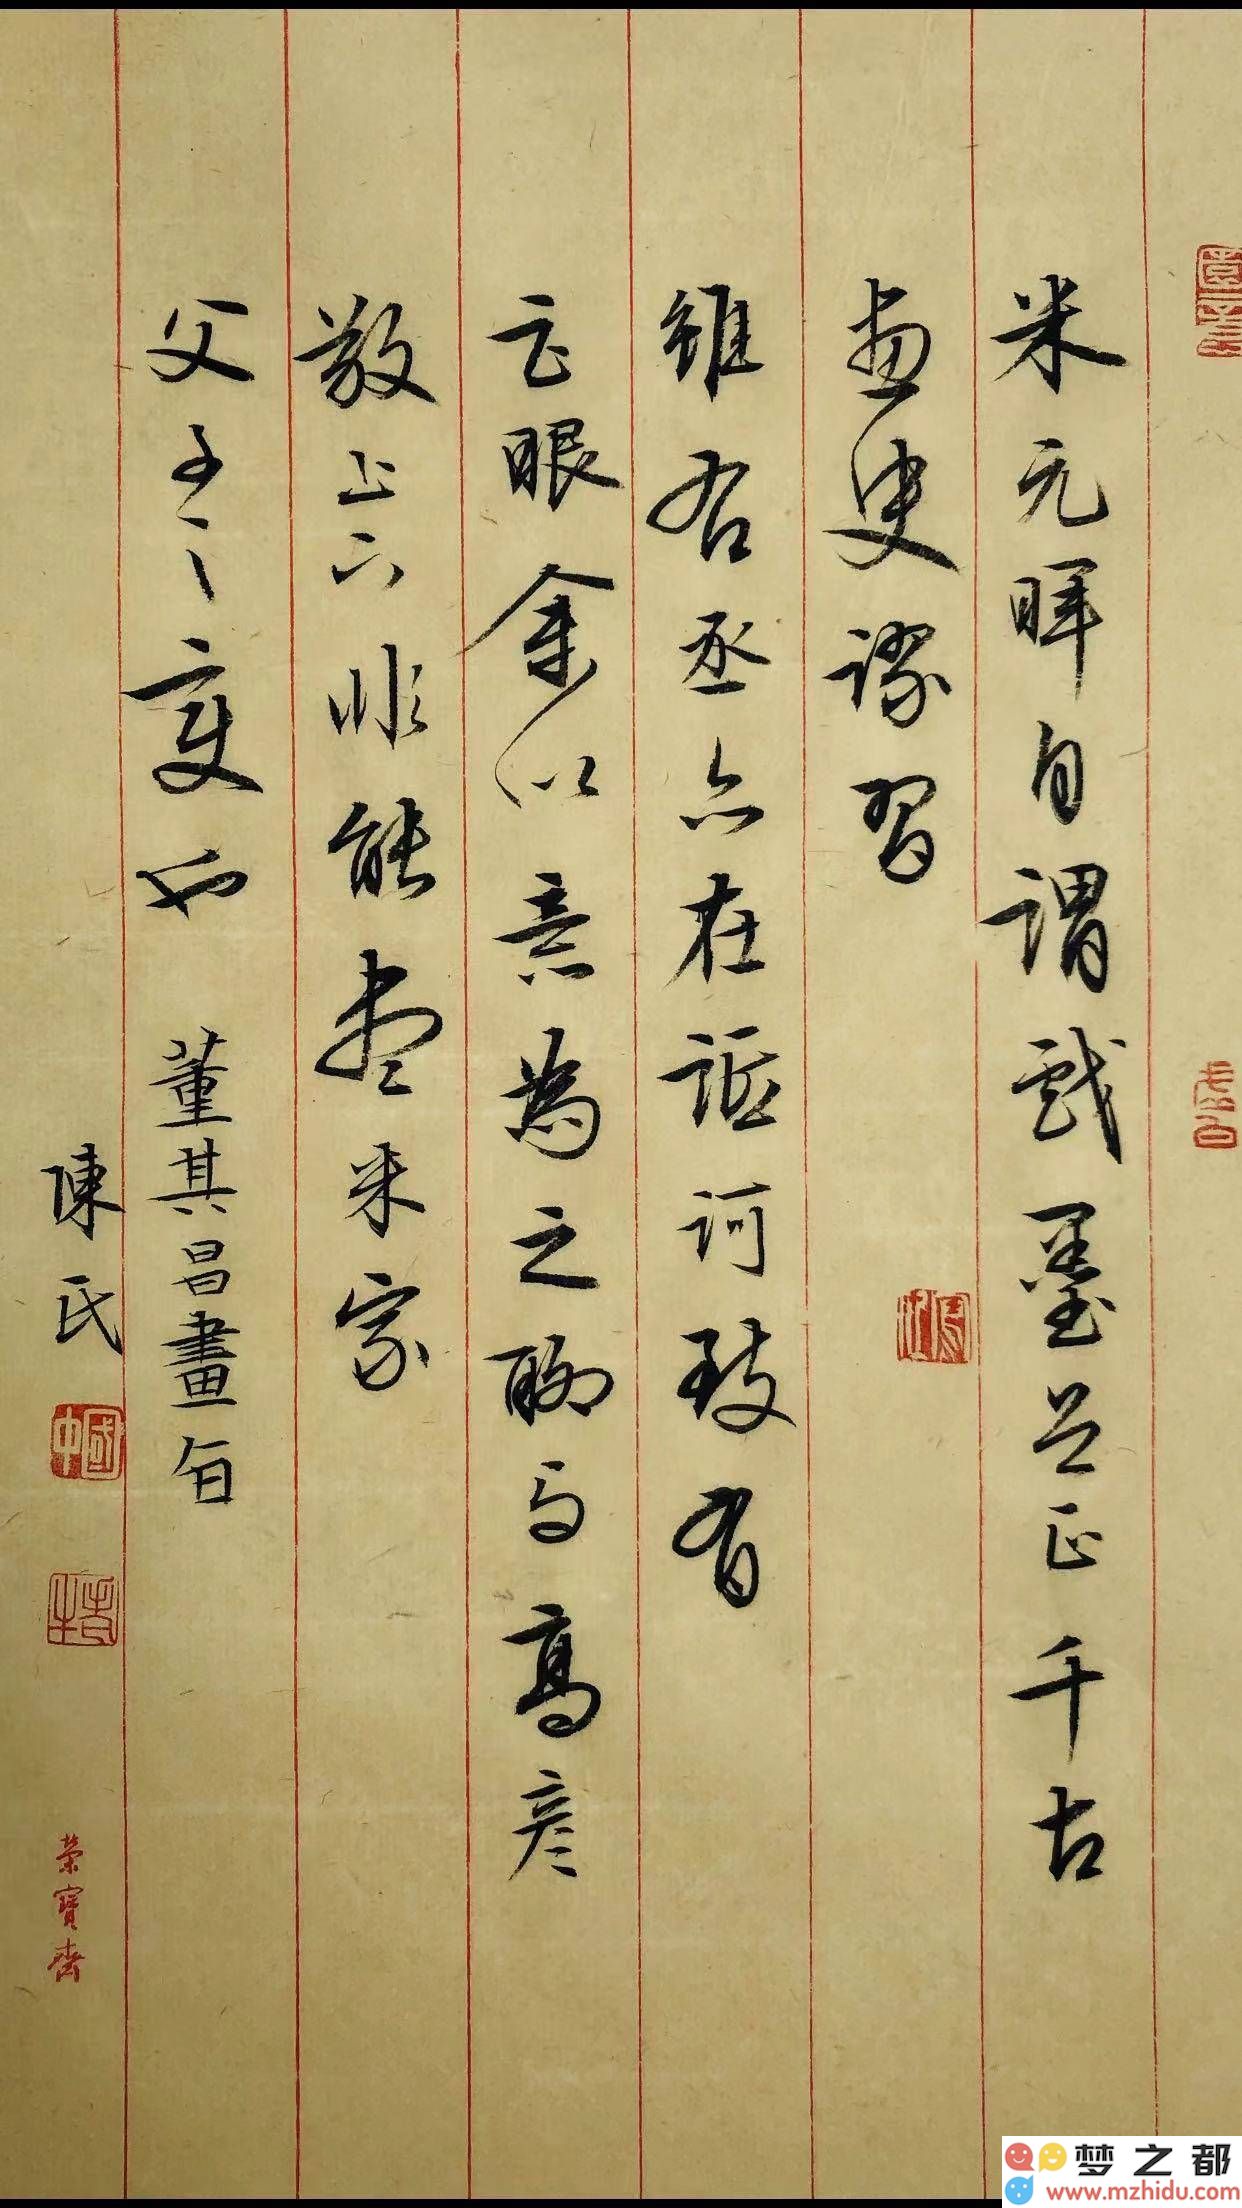 米元暉自謂戲墨足正千古
畫史謬習
雖右丞亦在詆訶致有
巨眼余以意為之聊与高彦
敬上下非能盡米家
父子之變也 董其昌畫旨
陳氏
榮寶齋
梦之都
www.mzhidu.com